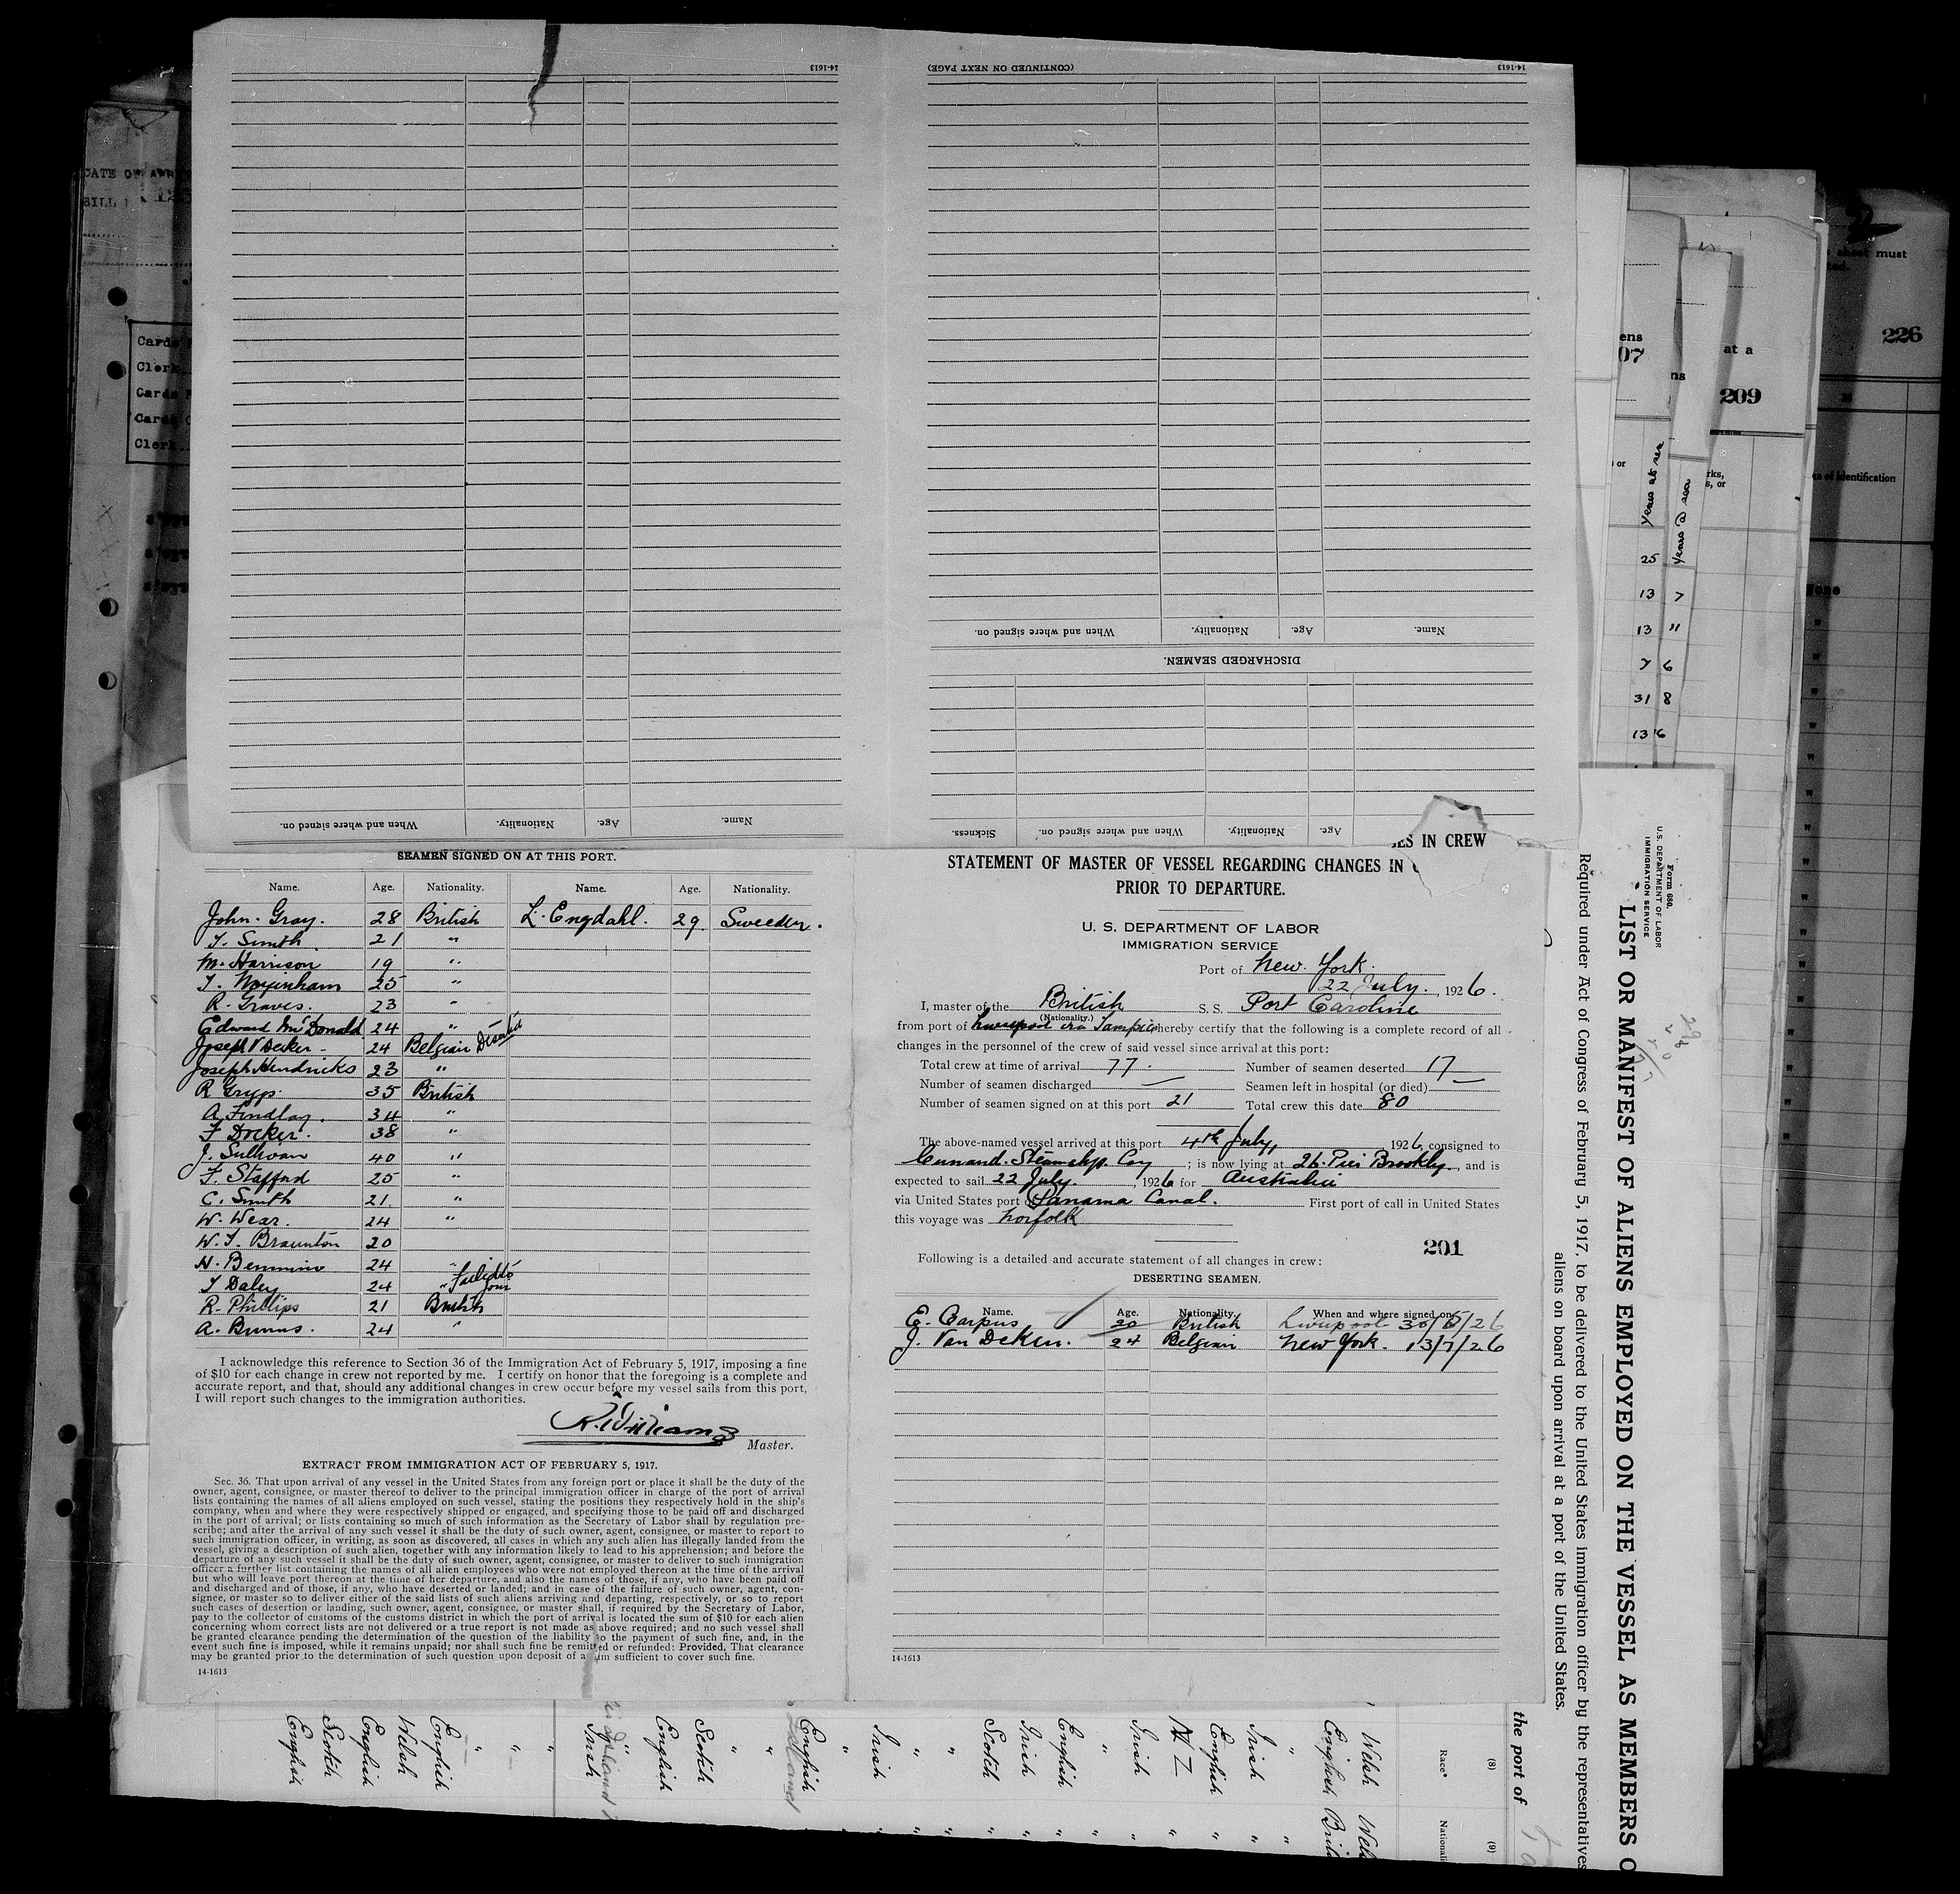 14-1613
(CONTINUED ON NEXT PAGE)
14-1613
When and where signed on. Nationality. Age. Name.
DISCHARGED SEAMEN.
When and where signed on. Nationality. Age. Name.
Sickness. When and where signed on. Nationality. Age.
SEAMEN SIGNED ON AT THIS PORT.
Name. Age. Nationality. Name. Age. Nationality.
John. Gray. 28 British L. Engdahl. 29. Sweeden.
T. Smith 21 "
M. Harrison 19 "
25 "
R. Graves. 23 "
Edward McDonald 24 "
Joseph V Decker - 24 Belgian
Joseph Hendricks 23 "
R Gryp. 35 British
A. Findlay. 34 "
F Docker. 38 "
J. Sullivan 40 "
F. Stafford 25 "
C. Smith 21. "
W. Wear. 24 "
W. T. Braunton 20
24 "
T Daley 24 " failed to join
R. Phillips 21 British
A. Burns. 24 "
I acknowledge this reference to Section 36 of the Immigration Act of February 5, 1917, imposing a fine
of $10 for each change in crew not reported by me. I certify on honor that the foregoing is a complete and
accurate report, and that, should any additional changes in crew occur before my vessel sails from this port,
I will report such changes to the immigration authorities.
R. Williams
Master.
EXTRACT FROM IMMIGRATION ACT OF FEBRUARY 5, 1917.
Sec. 36. That upon arrival of any vessel in the United States from any foreign port or place it shall be the duty of the
owner, agent, consignee, or master thereof to deliver to the principal immigration officer in charge of the port of arrival
lists containing the names of all aliens employed on such vessel, stating the positions they respectively hold in the ship's
company, when and where they were respectively shipped or engaged, and specifying those to be paid off and discharged
in the port of arrival; or lists containing so much of such information as the Secretary of Labor shall by regulation pre-
scribe; and after the arrival of any such vessel it shall be the duty of such owner, agent, consignee, or master to report to
such immigration officer, in writing, as soon as discovered, all cases in which any such alien has illegally landed from the
vessel, giving a description of such alien, together with any information likely to lead to his apprehension; and before the
departure of any such vessel it shall be the duty of such owner, agent, consignee, or master to deliver to such immigration
officer a further list containing the names of all alien employees who were not employed thereon at the time of the arrival
but who will leave port thereon at the time of her departure, and also the names of those, if any, who have been paid off
and discharged and of those, if any, who have deserted or landed; and in case of the failure of such owner, agent, con-
signee, or master so to deliver either of the said lists of such aliens arriving and departing, respectively, or so to report
such cases of desertion or landing, such owner, agent, consignee, or master shall, if required by the Secretary of Labor,
pay to the collector of customs of the customs district in which the port of arrival is located the sum of $10 for each alien
concerning whom correct lists are not delivered or a true report is not made as above required; and no such vessel shall
be granted clearance pending the determination of the question of the liability to the payment of such fine, and, in the
event such fine is imposed, while it remains unpaid; nor shall such fine be remitted or refunded: Provided, That clearance
may be granted prior to the determination of such question upon deposit of a sum sufficient to cover such fine.
14-1613
ES IN CREW
STATEMENT OF MASTER OF VESSEL REGARDING CHANGES IN C
PRIOR TO DEPARTURE.
U. S. DEPARTMENT OF LABOR
IMMIGRATION SERVICE
Port of New York.
22 July. , 1926.
I, master of the British S. S. Port Caroline
(Nationality.)
from port of Liverpool via Tampico hereby certify that the following is a complete record of all
changes in the personnel of the crew of said vessel since arrival at this port:
Total crew at time of arrival 77. Number of seamen deserted 17
Number of seamen discharged — Seamen left in hospital (or died) —
Number of seamen signed on at this port 21 Total crew this date 80
The above-named vessel arrived at this port 4th July, 1926, consigned to
Cunnard. Steamship. Coy ; is now lying at 26. Pier Brookly , and is
expected to sail 22 July. , 1926 for Australia
via United States port of Panama Canal. First port of call in United States
this voyage was Norfolk
201
Following is a detailed and accurate statement of all changes in crew:
DESERTING SEAMEN.
Name. Age. Nationality. When and where signed on.
E. Carpus 20 British Liverpool 30/5/26
J. Van Deken. 24 Belgian New York. 13/7/26
14-1613
Form 680.
U. S. DEPARTMENT OF LABOR
IMMIGRATION SERVICE
LIST OR MANIFEST OF ALIENS EMPLOYED ON THE VESSEL AS MEMBERS O
Required under Act of Congress of February 5, 1917, to be delivered to the United States immigration officer by the representatives
aliens on board upon arrival at a port of the United States.
the port of
(8) (9)
Race* Nationali
Welsh
English
"
Irish
English
Irish
"
English
Irish
Scotch
"
"
Irish
"
English
"
"
Scotch
English
Irish
"
"
English
Welsh
English
Scotch
English
Cards
Clerk
Cards
Cards
Clerk
ens
07
ns
at a
209
226
sheet must
ted.
rks,
s, or
ks of identification
or
Years at sea
Years @ sea
25
13 7
13 "
7 6
31 8
13 16
None